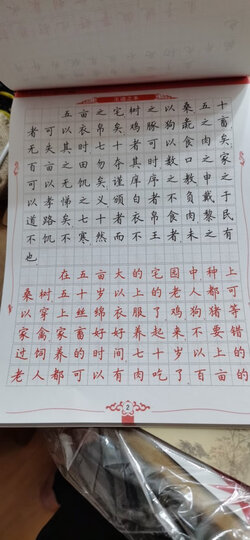 五亩之宅树之以桑五十
者可以衣帛矣鸡豚狗彘之畜
无失其时七十者可以食肉矣
百亩之田勿夺其时数口之家
可以无饥矣谨庠序之教申之
以孝悌之义颁白者不负戴于
道路矣七十者衣帛食肉黎民
不饥不寒然而不王者未之有
也
在五亩大的宅园中种上
桑树五十岁以上的老人都可
以穿上丝绵衣服了鸡狗猪等
家禽家畜好好养起来不要错
过饲养的时间七十岁以上的
老人都可以有肉吃了百亩的
2